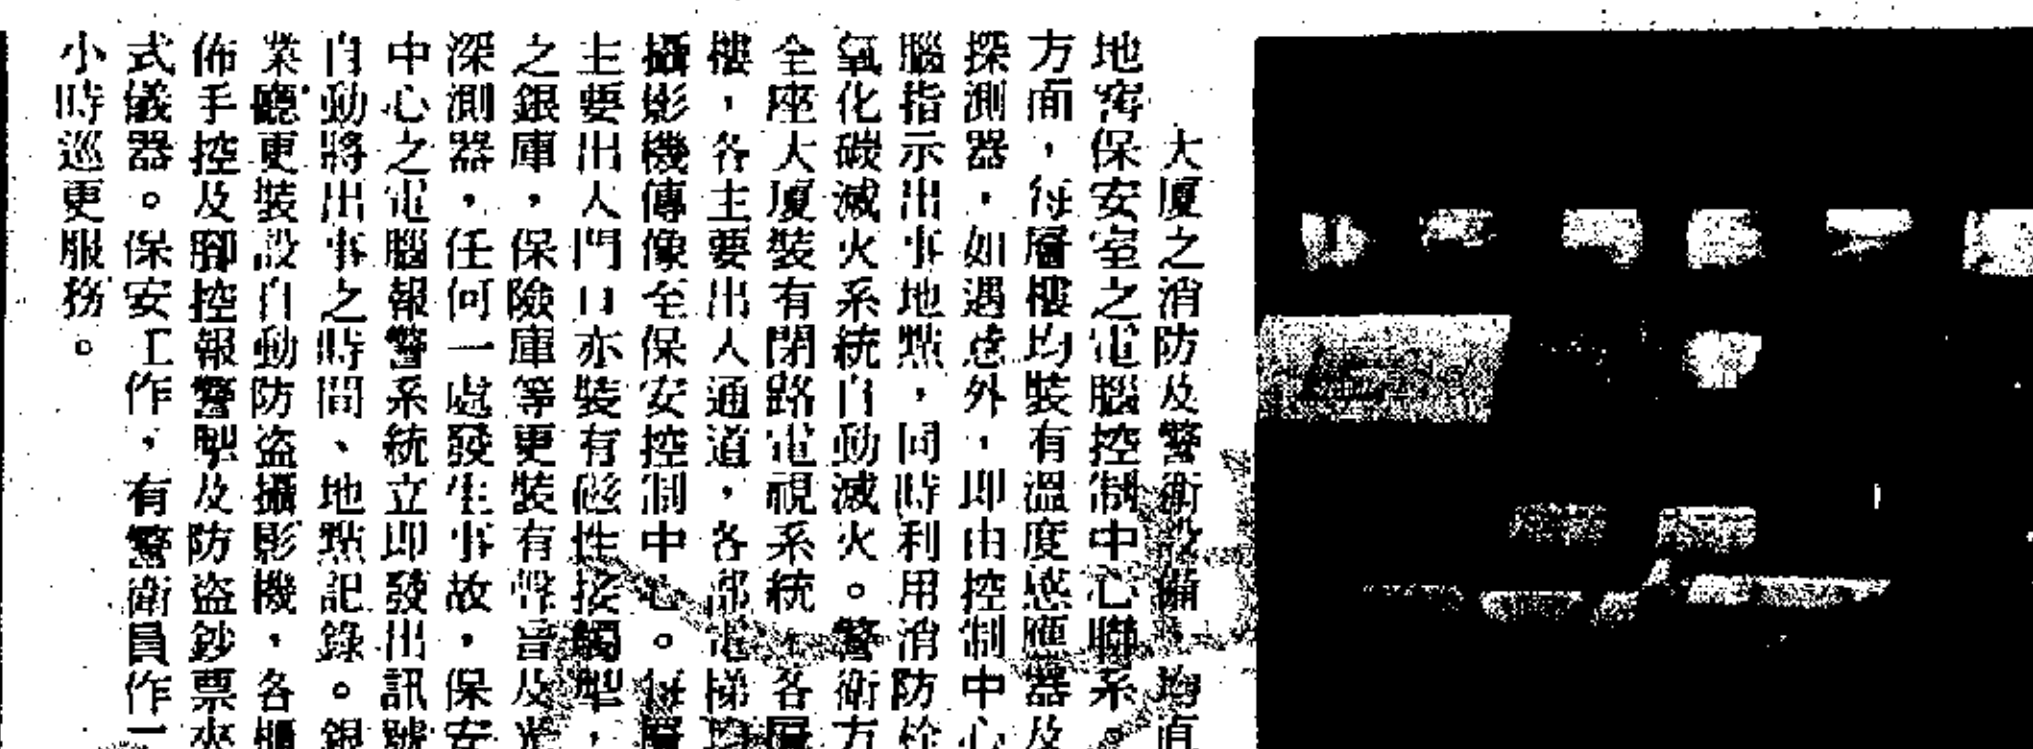 大厦之消防及警衛設備，均直
地窖保安室之電腦控制中心聯系。
方面，每層樓均裝有溫度感應器及
探測器，如遇意外，即由控制中心
腦指示出事地點，同時利用消防栓
氧化碳滅火系統自動滅火。警衛方
全座大廈裝有閉路電視系統，各層
樓，各主要出入通道，各部電梯均
攝影機傳像至保安控制中心。每層
主要出入門口亦裝有磁性接觸型，
之銀庫，保險庫等更裝有聲音及光
深測器，任何一處發生事故，保安
中心之電腦報警系統立即發出訊號
自動將出事之時間、地點記錄。銀
業廳更裝設自動防盜攝影機，各櫃
佈手控及腳控報警掣及防盜鈔票夾
式儀器。保安工作，有警衛員作一
小時巡更服務。